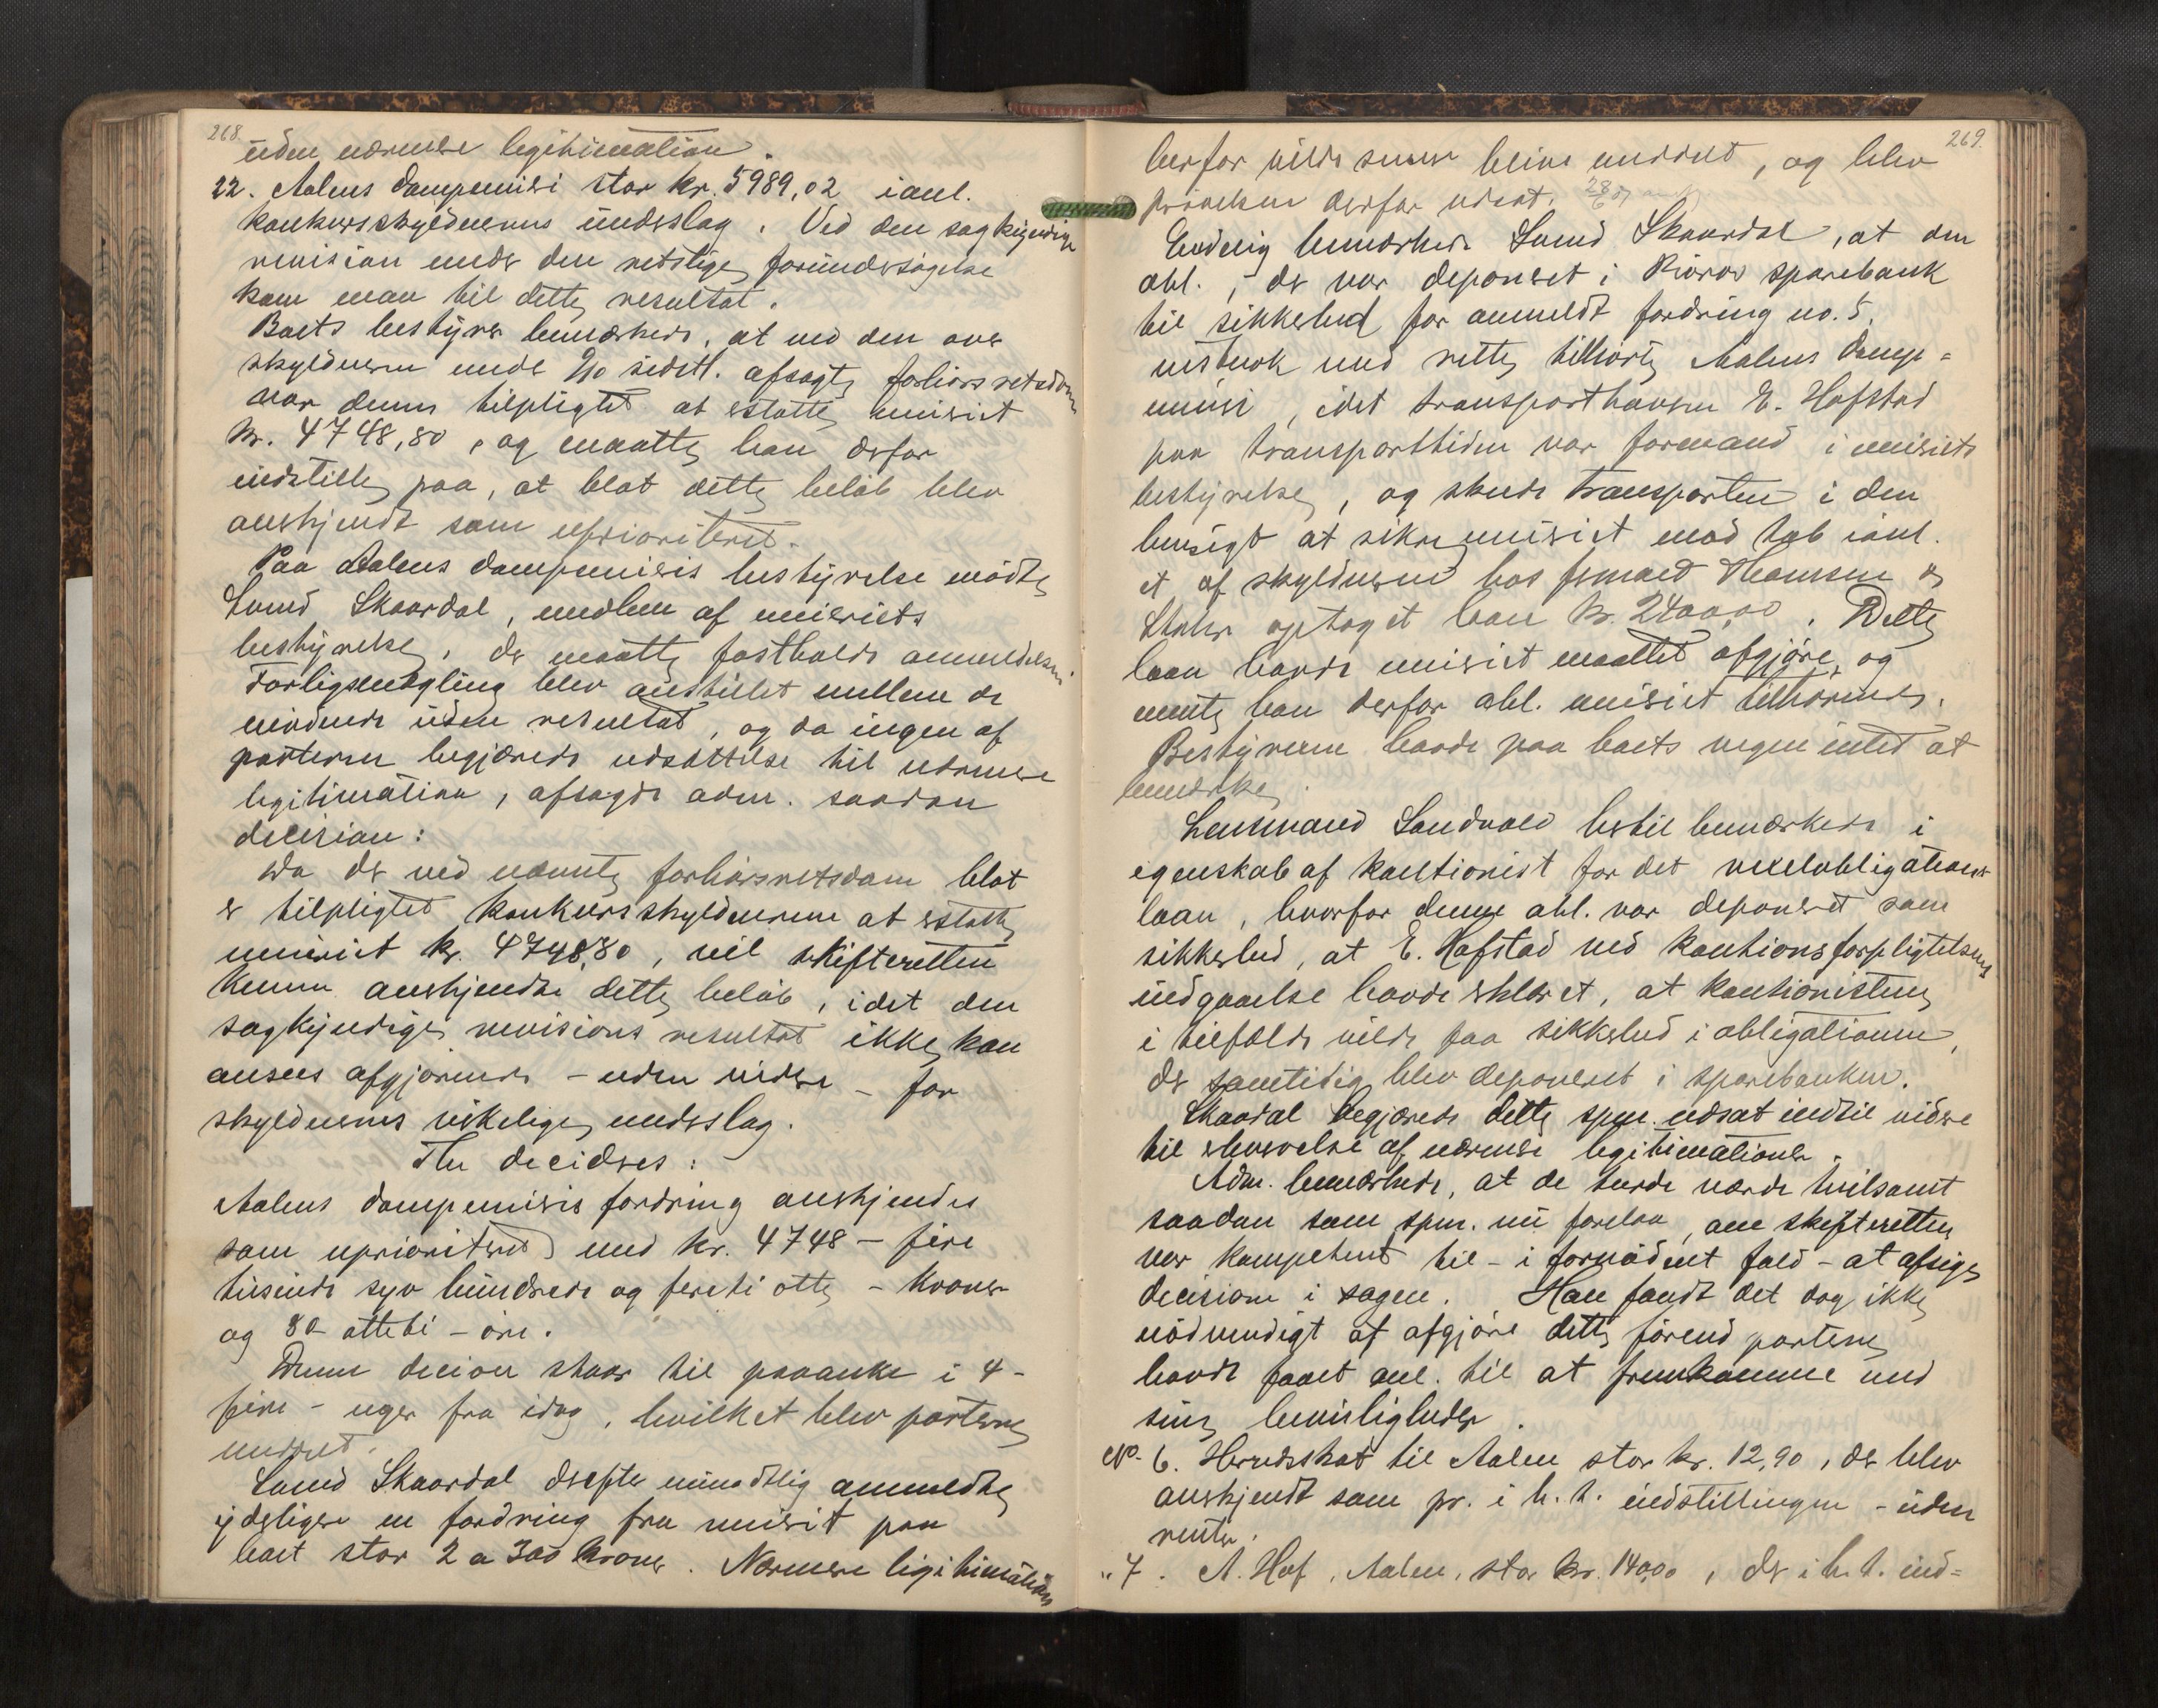 268.
uden nærmere legitimation.
22. Aalens dampmeieri stor kr. 5989,02 i anl.
konkursskyldnerens underslag. Ved den sagkyndige
revision under den retslige forundersøgelse
kom man til dette resultat.
Boets bestyrer bemærkede, at ved den over
skyldneren under sidstl. afsagte forhørsretsdom
var denne tilpligtet at erstatte meieriet
kr. 4748,80, og maatte han derfor
indstille paa, at blot dette beløb blev
anerkjendt som uprioriteret.
Paa Aalens dampmeieris bestyrelse mødte
Skaardal, medlem af meieriets
bestyrelse, der maatte fastholde anmeldelsen.
Forligsmægling blev anstillet mellem de
mødende uden resultat, og da ingen af
parterne begjærede udsættelse til nærmere
legitimation, afsagde adm. saadan
decision:
Da der ved nævnte forhørsretsdom blot
er tilpligtet konkursskyldneren at erstatte
meieriet kr. 4748,80, vil skifteretten
kunne anerkjende dette beløb, idet den
sagkyndige revisions resultat ikke kan
ansees afgjørende - uden videre - for
skyldnerens virkelige underslag.
Thi decideres:
Aalens dampmeieris fordring anerkjendes
som uprioriteret med kr. 4748 - fire
tusinde syv hundrede og firti otte - kroner
og 80 - otteti - øre.
Denne decion staar til paaanke i 4 -
fire - uger fra idag, hvilket blev parterne
meddelt.
Skaardal derefter mundtlig anmeldte
yderligere en fordring fra meieriet paa
boet stor 2 a 300 kroner. Nærmere legitimation
269.
herfor vilde senere blive meddelt, og blev
prøvelsen derfor udsat. 28/6 07
Endelig bemærkede Skaardal, at den
obl., der var deponeret i Røros sparebank
til sikkerhed for anmeldt fordring no. 5,
med rette tilhørte Aalens damp-
meieri, idet transporthaveren E. Hofstad
paa transporttiden var formand i meieriets
bestyrelse, og skede transporten i den
hensigt at sikre meieriet mod tab i anl.
et af skyldneren hos firmaet Thomsen &
optaget laan kr. 2400,00. Dette
laan havde meieriet maattet afgjøre, og
mente han derfor obl. meieriet tilhørende.
Bestyreren havde paa boets vegne intet at
bemærke.
Lensmand Sandvold hertil bemærkede i
egenskab af kautionist for det vexelobligations-
laan, hvorfor denne obl. var deponeret som
sikkerhed, at E. Hofstad ved kautionsforpligtelsens
indgaaelse havde erklæret, at kautionisterne
i tilfælde vilde faa sikkerhed i obligationen,
der samtidig blev deponeret i sparebanken.
Skaardal begjærede dette spm. udsat indtil videre
til erhvervelse af nærmere legitimationer.
Adm. bemærkede, at de turde være tvilsomt
saadan som spm. nu forelaa, om skifteretten
var kompetent til - i fornødent fald - at afsige
decision i sagen. Han fandt det dog ikke
nødvendigt at afgjøre dette førend parterne
havde faaet anl. til at fremkomme med
sine bevisligheder.
No. 6. Herredsskat til Aalen stor kr. 12,90, der blev
anerkjendt som pr. i h. t. indstillingen - uden
renter.
" 7. A. Hof, Aalen, stor kr. 140,00, der i h. t. ind-